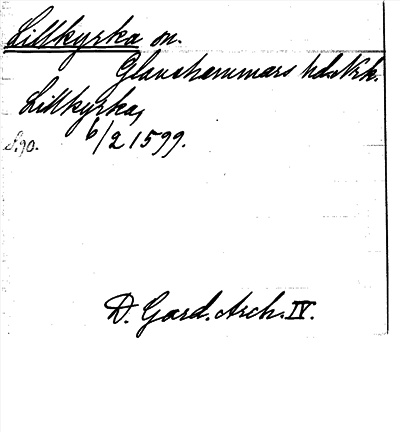 Lillkyrka sn.
Glanshammars hd. Nrk.
Lillkyrka,
S. 90. 6/2 1599.
D. Gard. Arch. IV.